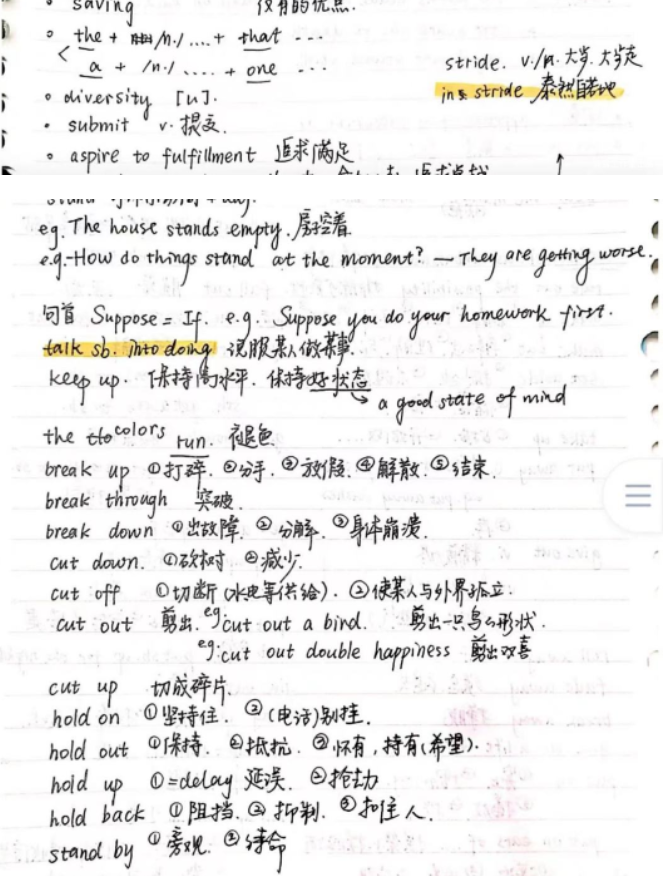 saving 没有的优点.
the + n./.... + that ...
a + /n./ .... + one ...
stride. v./n. 大步. 大步走
in stride 泰然自若地
diversity [u].
submit v. 提交.
aspire to fulfillment 追求满足
e.g. The house stands empty. 房空着
e.g.-How do things stand at the moment? — They are getting worse.
句首 Suppose = If. e.g. Suppose you do your homework first.
talk sb. into doing 说服某人做某事.
keep up. 保持高水平. 保持好状态
a good state of mind
the colors run. 褪色
break up ①打碎. ②分手. ③放假. ④解散. ⑤结束.
break through 突破.
break down ①出故障. ②分解. ③身体崩溃.
cut down. ①砍树 ②减少.
cut off ①切断(水电等供给). ②使某人与外界孤立.
cut out 剪出. eg: cut out a bird. 剪出一只鸟の形状.
eg: cut out double happiness 剪出双喜
cut up 切成碎片.
hold on ①坚持住. ②(电话)别挂.
hold out ①保持. ②抵抗. ③怀有, 持有(希望).
hold up ①=delay 延误. ②抢劫
hold back ①阻挡. ②抑制. ③扣住人.
stand by ①旁观. ②待命